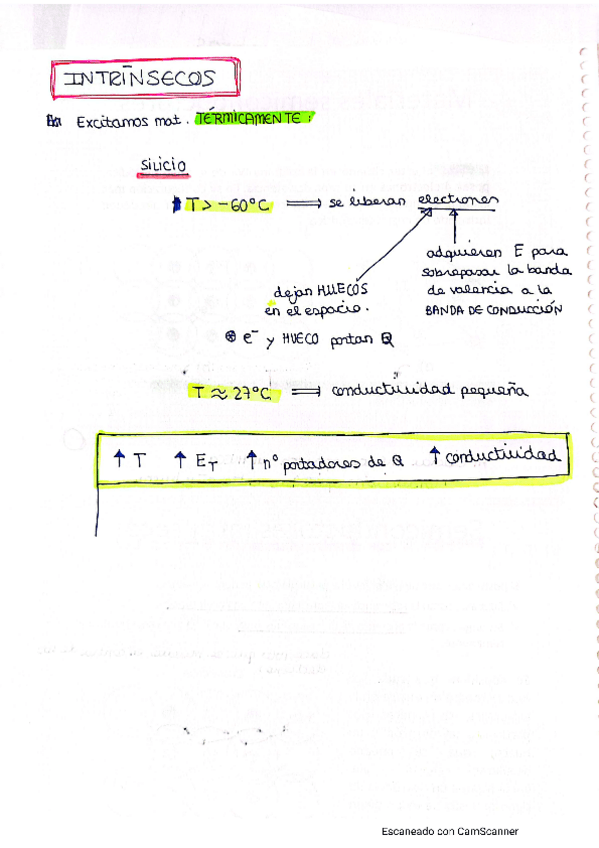 INTRÍNSECOS
En Excitamos mat. TÉRMICAMENTE:
SILICIO
T > -60ºC ⟹ se liberan electrones
adquieren E para
sobrepasar la banda
de valencia a la
BANDA DE CONDUCCIÓN
dejan HUECOS
en el espacio.
⊛ e⁻ y HUECO portan Q
T ≈ 27ºC ⟹ conductividad pequeña
↑ T ↑ E_T ↑ nº portadores de Q ↑ conductividad
Escaneado con CamScanner